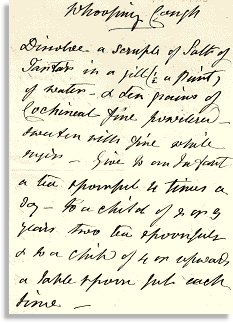 Whooping Cough
Disolve a scruple of Salts of
Tartar in a jill (½ a pint)
of water - & ten grains of
Cochineal fine powdered -
sweeten with fine white
sugar - Give to an Infant
a tea spoonful 4 times a
day - to a child of 2 or 3
years two tea spoonfuls
& to a child of 4 or upwards
a table spoon full each
time -